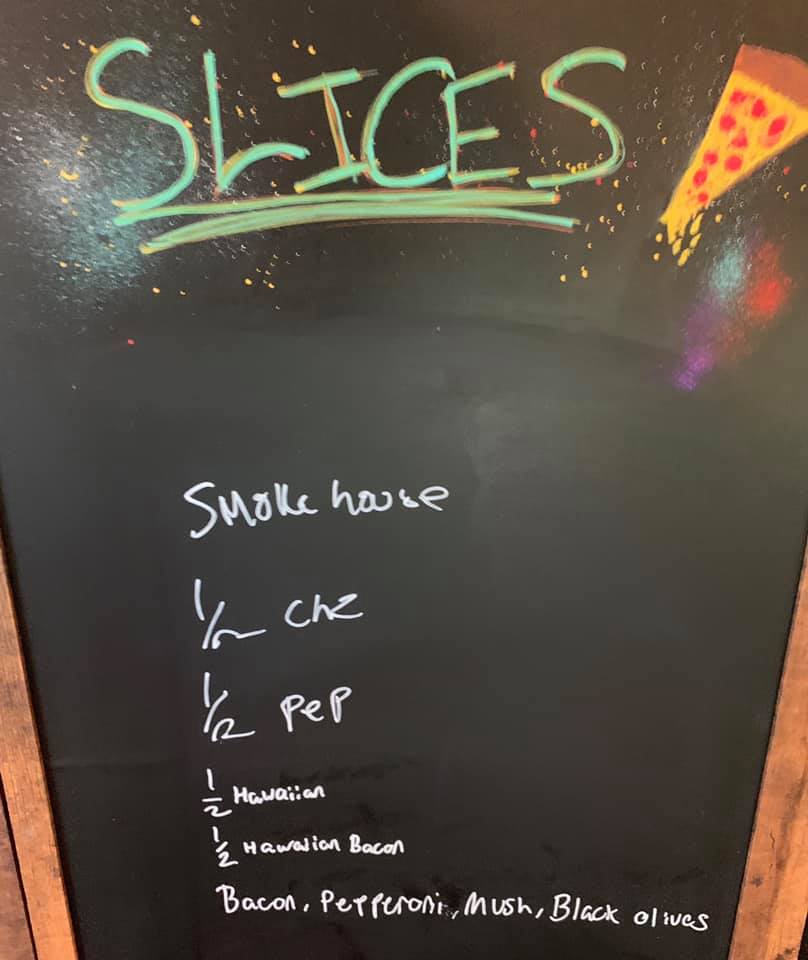 SLICES
Smoke house
1/2 Chz
1/2 Pep
1/2 Hawaiian
1/2 Hawaiian Bacon
Bacon, Pepperoni, Mush, Black olives